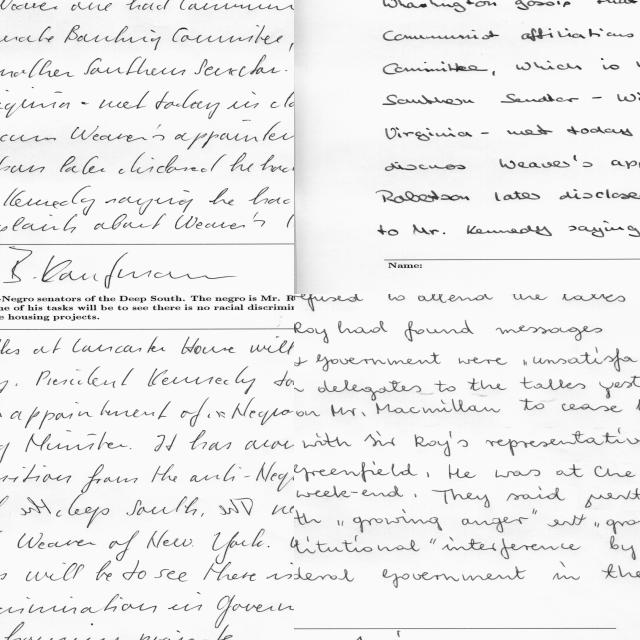 Weaver one had Commun
Banking Committee,
another Southern Senator.
met today in clo
Weaver's appointme
later disclosed he had
Kennedy saying he had
about Weaver's
B. Kaufmann
-Negro senators of the Deep South. The negro is Mr. R
ne of his tasks will be to see there is no racial discrimin
e housing projects.
at Lancaster House will
President Kennedy to
appointment of a Negro
Minister. It has
from the anti-Neg
deep South,
Weaver of New York.
will be to see there is
in Govern
Washington gossip that
Communist affiliations
Committee, which is
Southern Senator - Wi
Virginia - met today
discuss Weaver's app
Robertson later disclose
to Mr. Kennedy saying
Name:
refused to attend the talks
Roy had found messages
Government were "unsatisfa
delegates to the talks yest
on Mr. Macmillan to cease
with Sir Roy's representativ
Greenfield. He was at Che
week-end. They said
th "growing anger" "gro
titutional" interference by
deral Government in the